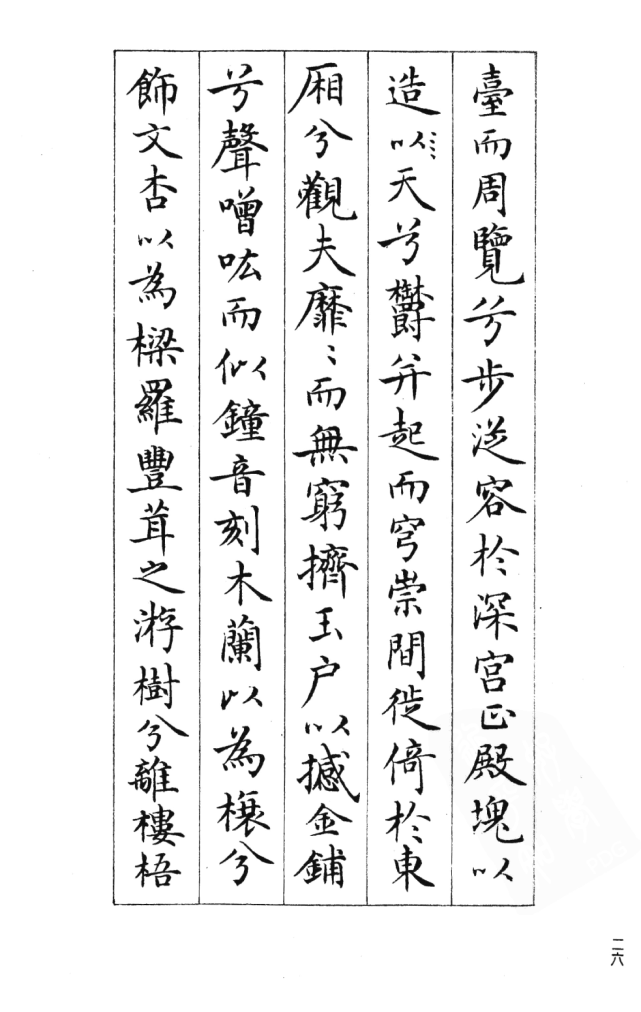 臺而周覽兮步逆容於深宮正殿塊以
造以天兮鬱并起而穹崇間徙倚於東
厢兮觀夫靡〻而無窮擠玉户以撼金鋪
兮聲噌吰而似鐘音刻木蘭以為榱兮
飾文杏以為樑羅豐茸之游樹兮離樓梧
二六